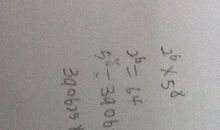 2⁶ × 5⁸
2⁶ = 64
5⁸ = 3906
390625